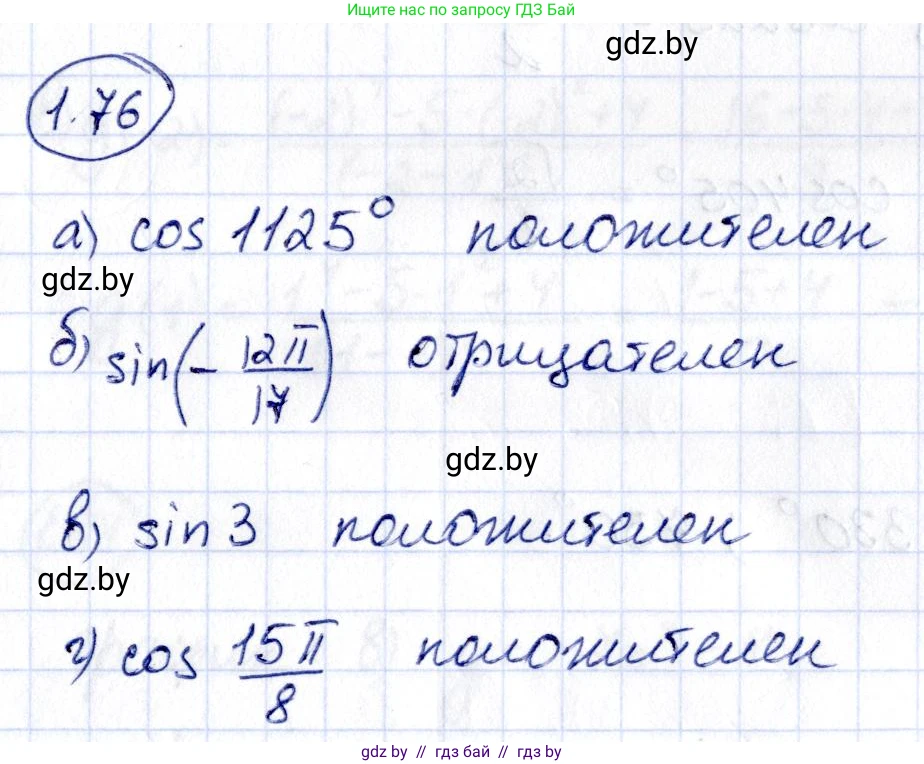 Ищите нас по запросу ГДЗ Бай
gdz.by
1.76
а) cos 1125° положителен
gdz.by
б) sin(-12π/17) отрицателен
gdz.by
в) sin 3 положителен
gdz.by
г) cos 15π/8 положителен
gdz.by // гдз бай // gdz by